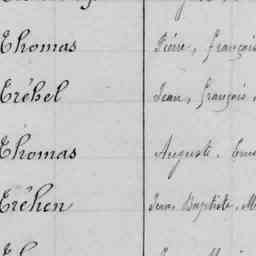 Thomas Pierre, François
Tréhel Jean, François
Thomas Auguste, 
Tréhen Jean Baptiste, M